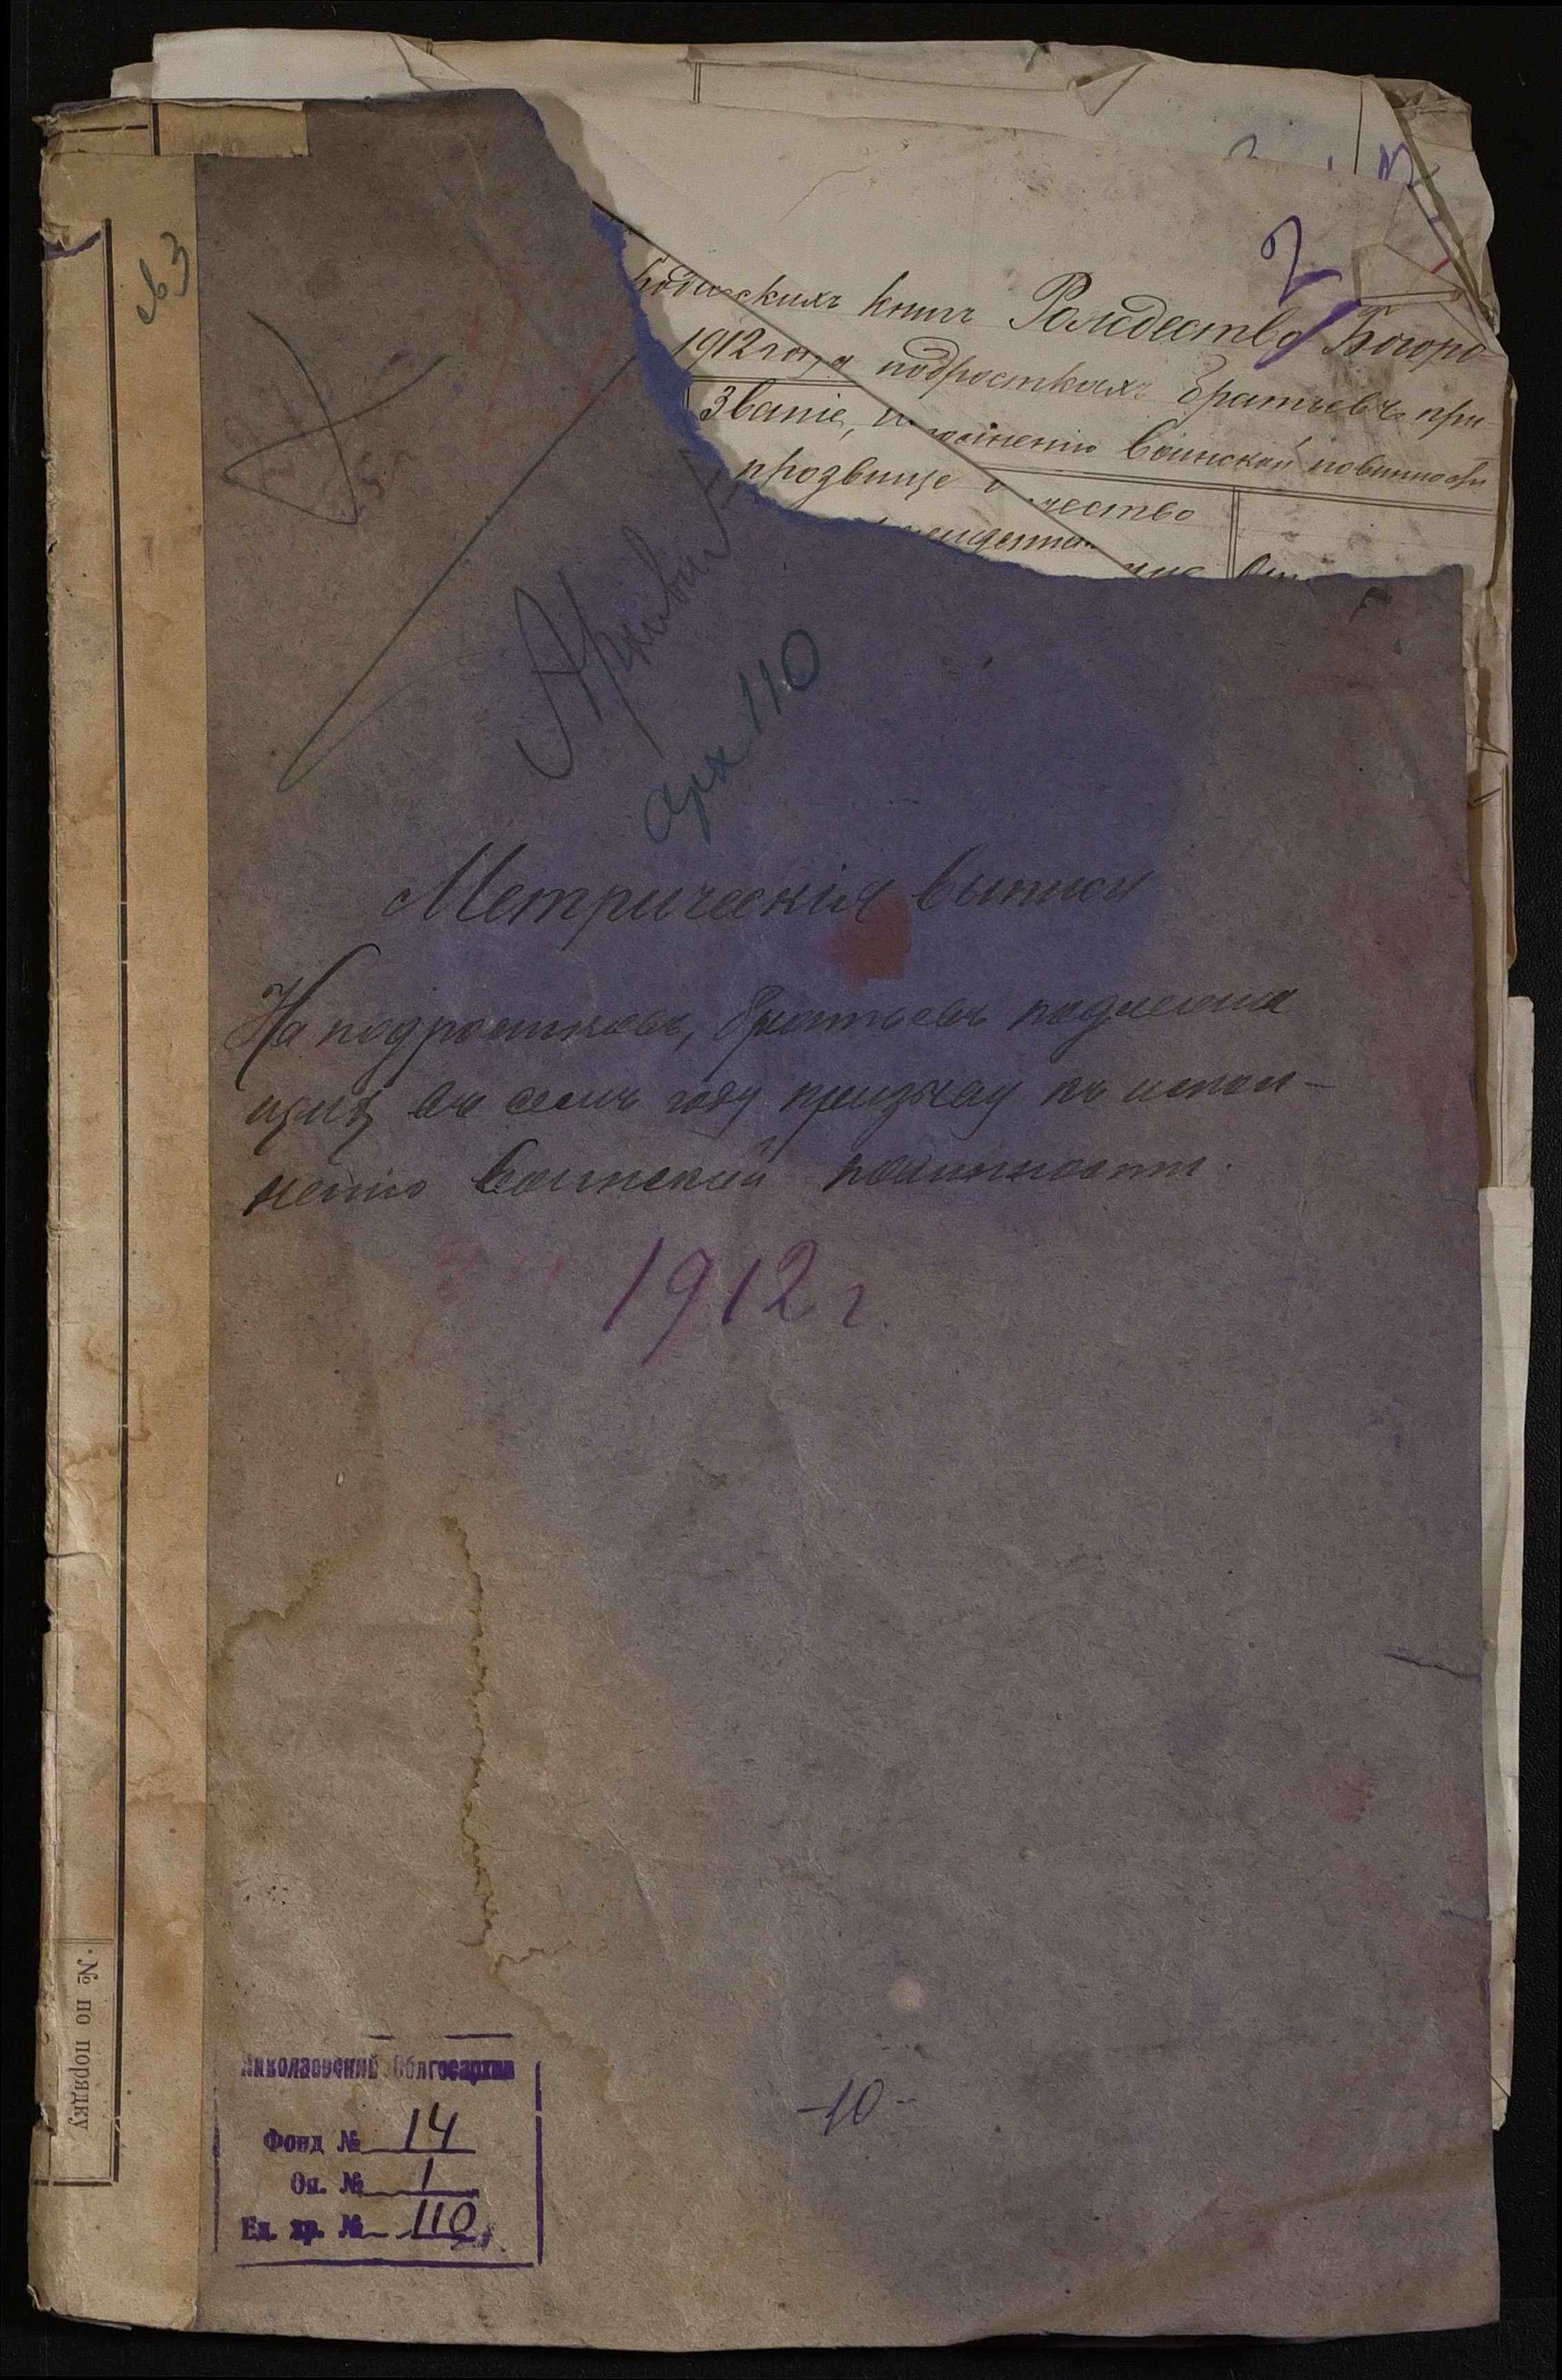 св 3
2
книгъ Рождество Богоро
1912 года подросткахъ братьевъ при
Званіе, воинской повинности
прозвище чество
Архивъ
арх 110
Метрическія выписи
На подростковъ, братьевъ подлежа
щихъ въ семъ году призыву къ испол-
ненію воинской повинности.
1912 г.
-10-
Николаевский Облгосархив
Фонд № 14
Оп. № 1
Ед. хр. № 110
№ по порядку